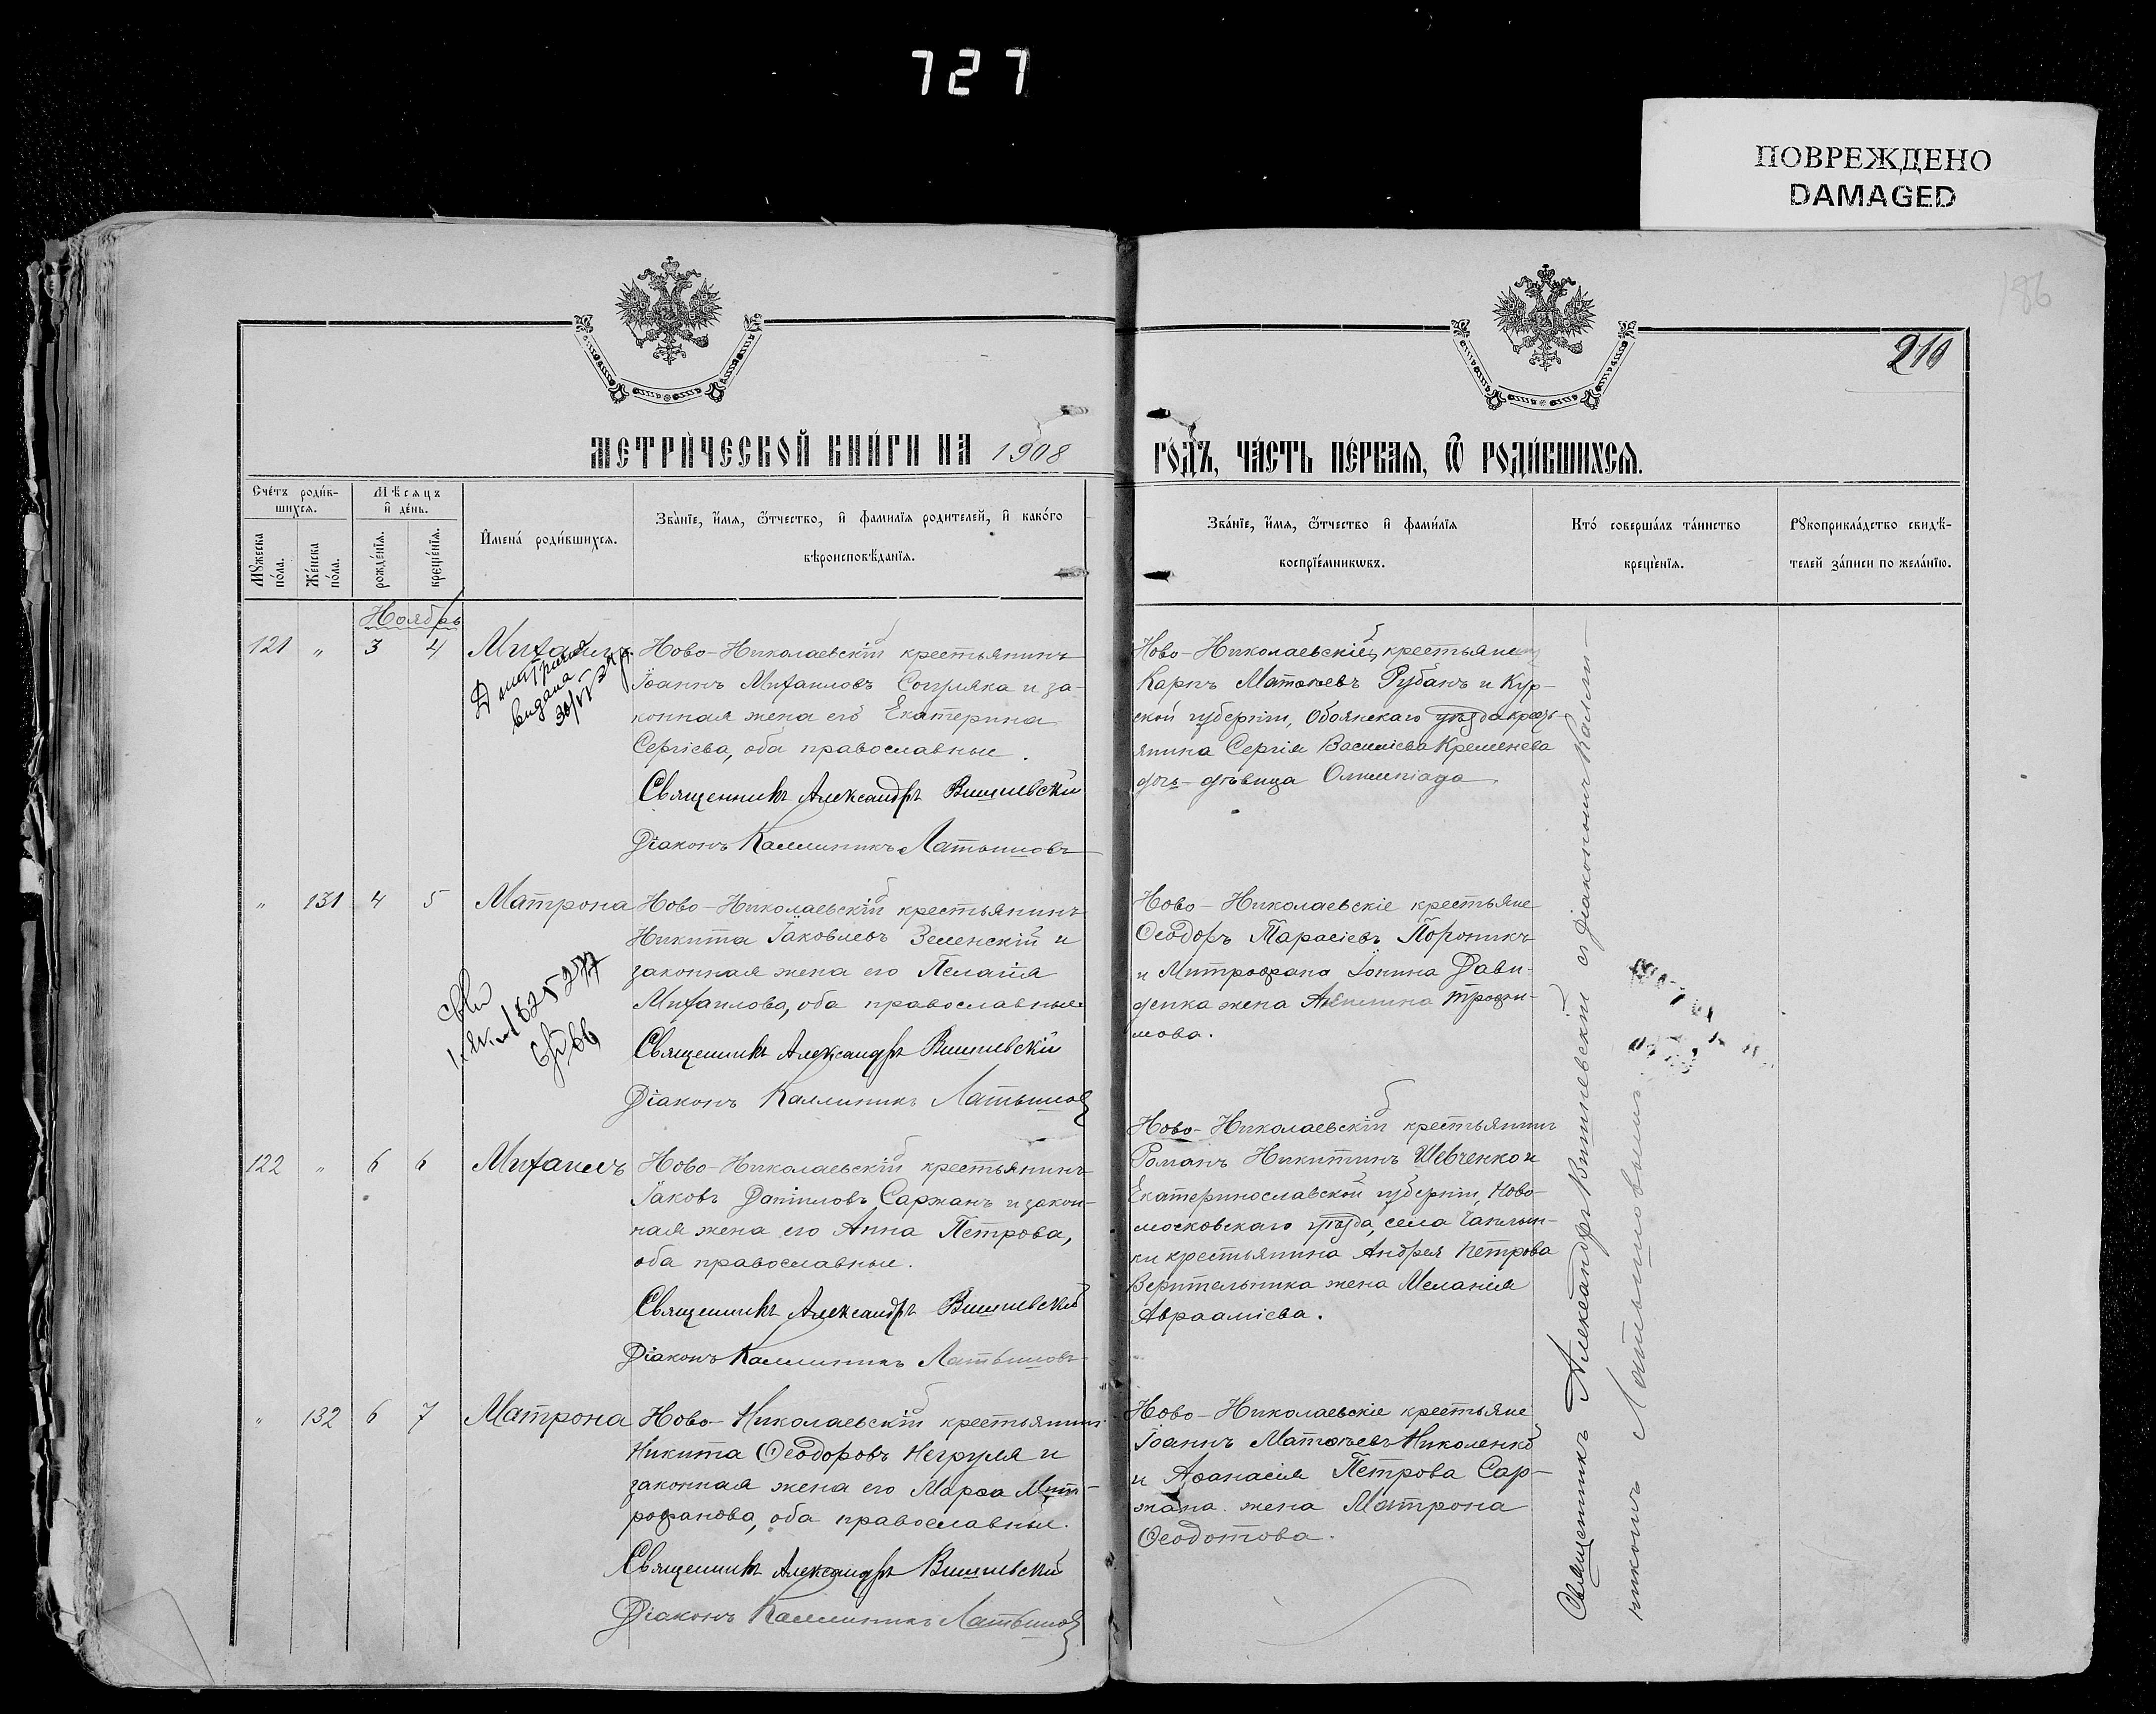 727
ПОВРЕЖДЕНО
DAMAGED
186
210
МЕТРИ́ЧЕСКОЙ КНИ́ГИ НА 1908
ГО́ДЪ, ЧА́СТЬ ПЕ́РВАЯ, Ѿ РОДИ́ВШИХСЯ.
Сче́тъ роди́в-
шихся.
Мѣсяцъ
и де́нь.
Мꙋжеска по́ла.
Же́нска по́ла.
рожде́нїя.
креще́нїя.
Имена́ роди́вшихся.
Зва́нїе, и́мя, ѻ҆́тчество, и фами́лїя родителей, и како́го
вѣроисповѣ́данїя.
Зва́нїе, и́мя, ѻ҆́тчество и фами́лїя
воспрїе́мникѡвъ.
Кто́ соверша́лъ та́инство
креще́нїя.
Рꙋкоприкла́дство свидѣ́-
телей за́писи по жела́нїю.
Ноябрь
121 " 3 4 Михаилъ
Ново-Николаевскій крестьянинъ
Іоаннъ Михаиловъ Согуляка и за-
конная жена его Екатерина
Сергіева, оба православные.
Священникъ Александръ Вишневскій
Діаконъ Каллиникъ Латышовъ
видана
Ново-Николаевскій крестьянинъ
Карпъ Матѳіевъ Рубанъ и Кур-
ской губерніи, Обоянскаго уѣзда кресть-
янина Сергія Василіева Кременева
дочь-дѣвица Олимпіада
" 131 4 5 Матрона
Ново-Николаевскій крестьянинъ
Никита Іаковлевъ Зеленскій и
законная жена его Пелагія
Михаилова, оба православные
Священникъ Александръ Вишневскій
Діаконъ Каллиникъ Латышовъ
Ново-Николаевскіе крестьяне
Ѳеодоръ Тарасіевъ Пороникъ
и Митрофана Іонина Дави-
денка жена Акилина Трофи-
мова.
122 " 6 6 Михаилъ
Ново-Николаевскій крестьянинъ
Іаковъ Даніиловъ Саржанъ и закон-
ная жена его Анна Петрова,
оба православные.
Священникъ Александръ Вишневскій
Діаконъ Каллиникъ Латышовъ
Ново-Николаевскій крестьянинъ
Романъ Никитинъ Шевченко и
Екатеринославской губерніи, Ново-
московскаго уѣзда, села Чаплин-
ки крестьянина Андрея Петрова
Верительника жена Меланія
Авраамiева.
" 132 6 7 Матрона
Ново-Николаевскій крестьянинъ
Никита Ѳеодоровъ Негруля и
законная жена его Марѳа Мит-
рофанова, оба православные.
Священникъ Александръ Вишневскій
Діаконъ Каллиникъ Латышовъ
Ново-Николаевскіе крестьяне
Іоаннъ Матѳіевъ Николенко
и Аѳанасія Петрова Сар-
жана жена Матрона
Ѳеодотова.
Священникъ Александръ Вишневскій съ діакономъ Калли-
никомъ Латышовымъ.